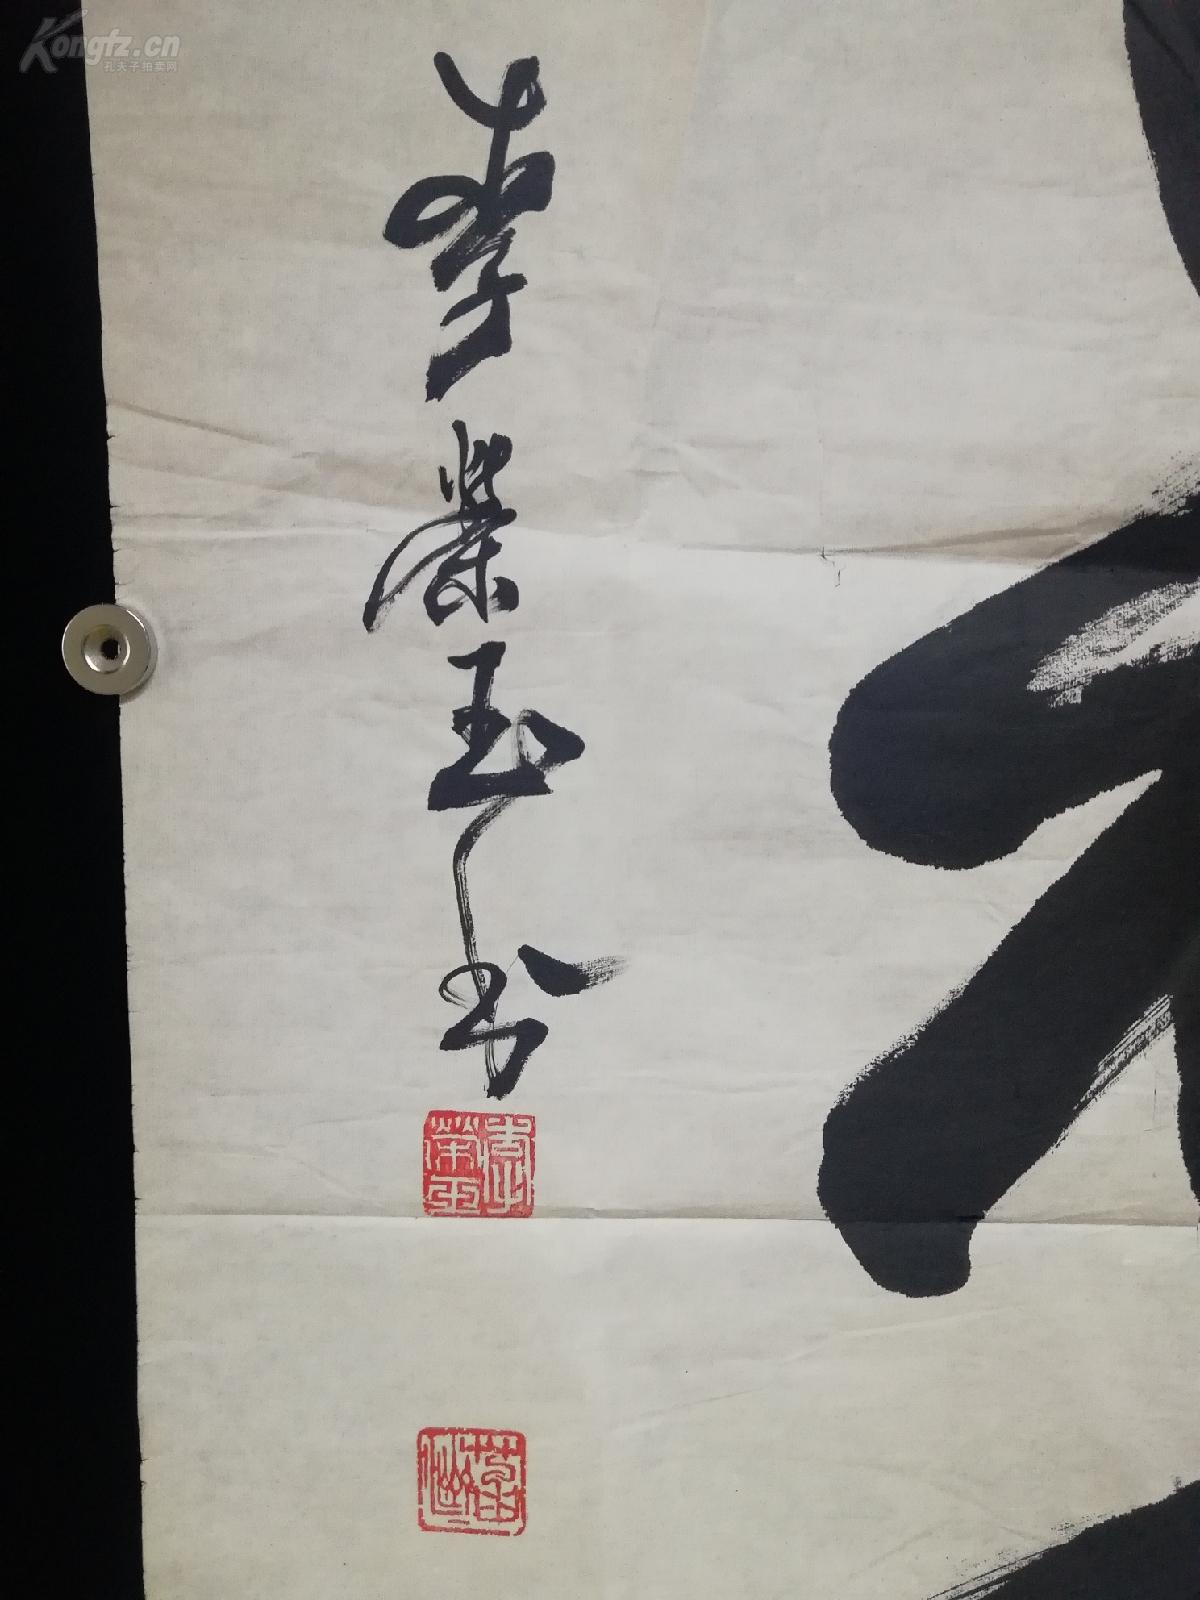 Kongfz.cn
孔夫子拍卖网
李荣玉书
李荣玉